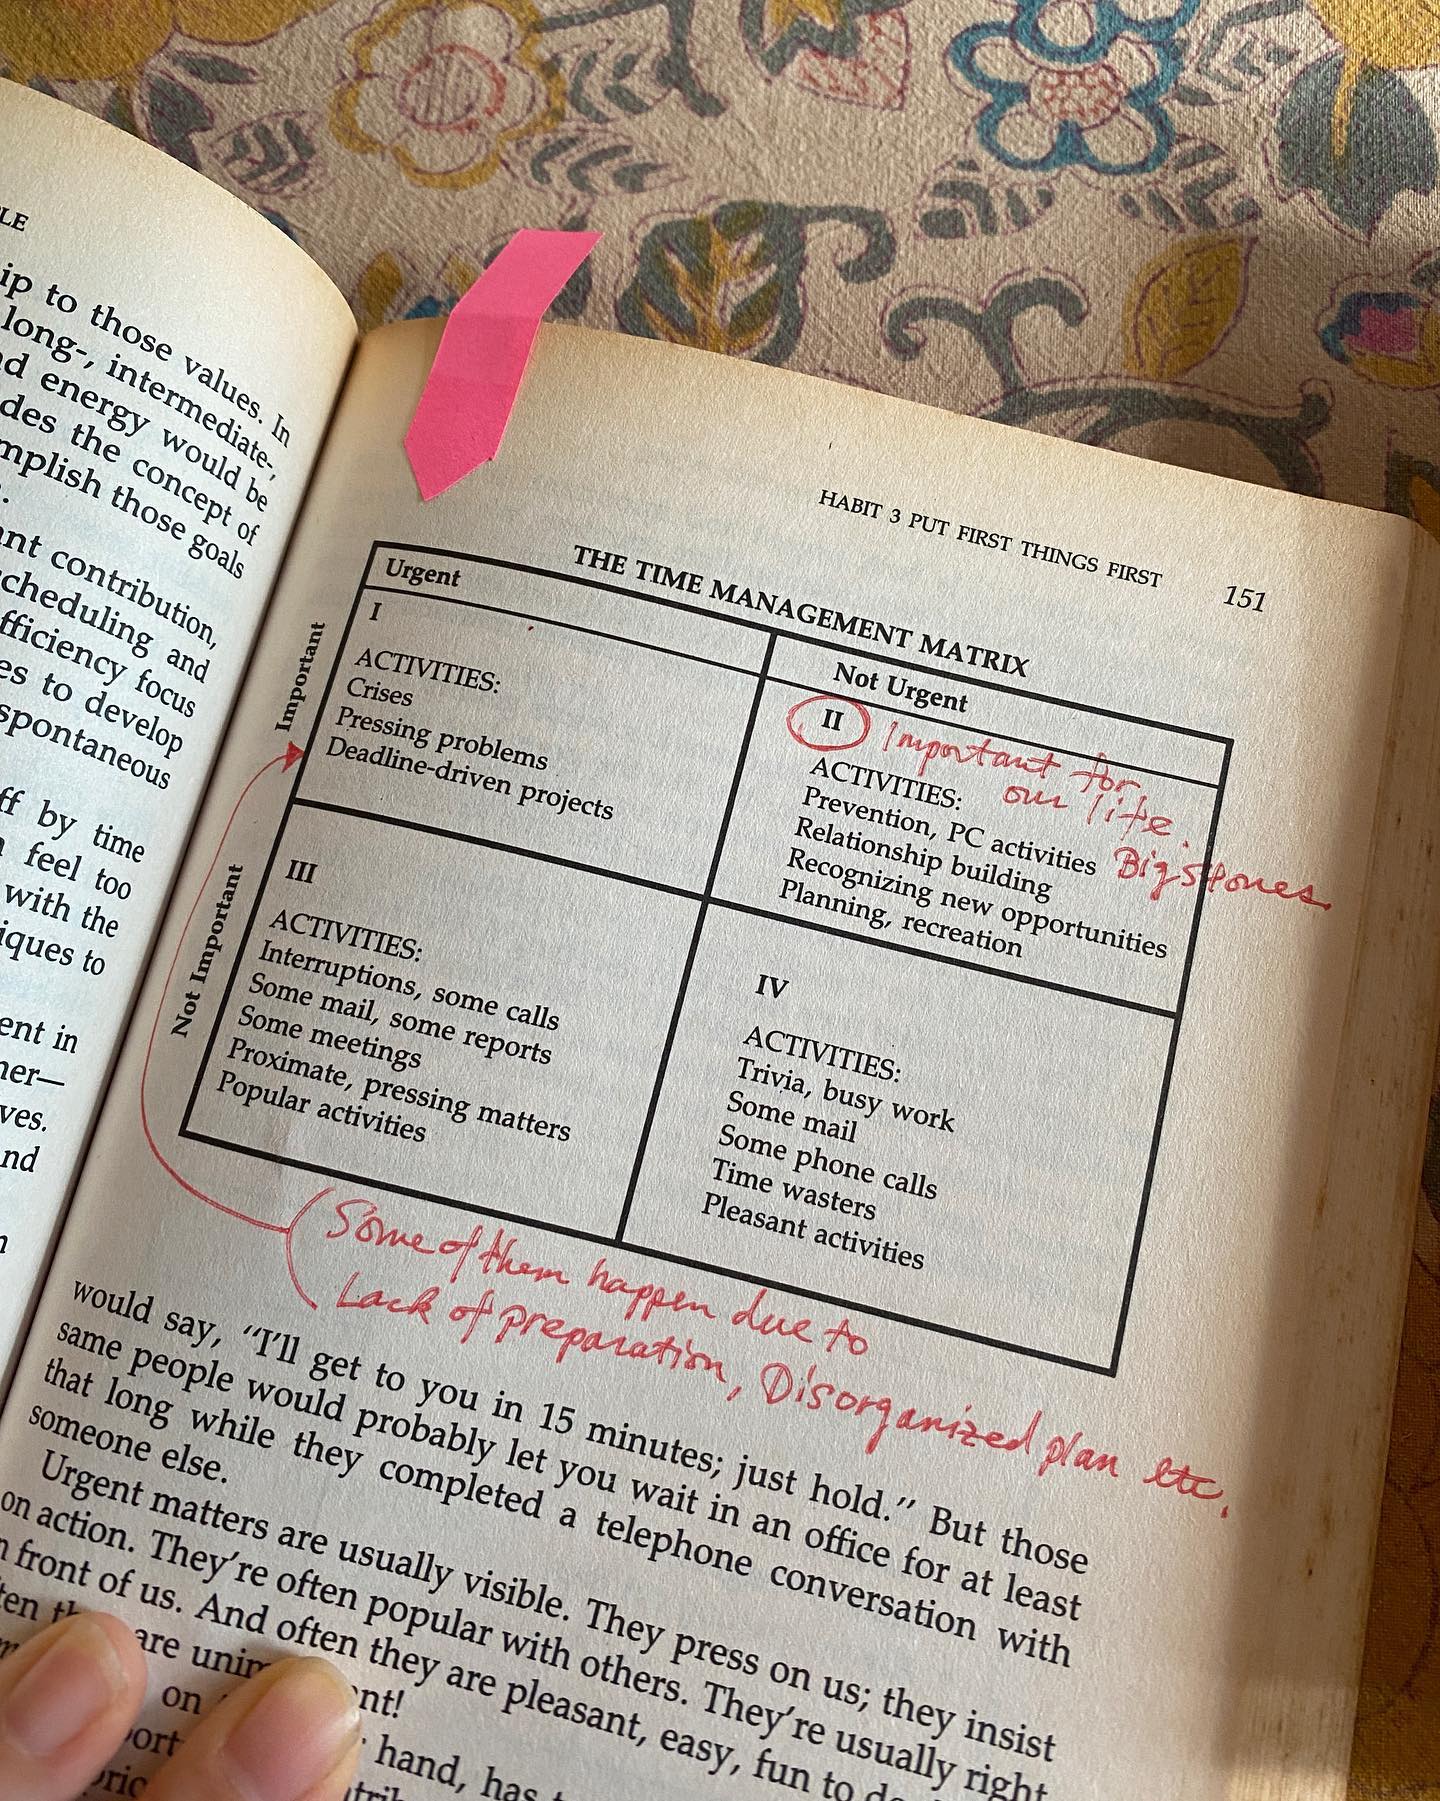 LE
ip to those values. In
long-, intermediate-,
energy would be
des the concept of
mplish those goals
nt contribution,
cheduling and
fficiency focus
es to develop
spontaneous
ff by time
feel too
with the
iques to
ent in
ner—
ves.
nd
HABIT 3 PUT FIRST THINGS FIRST 151
THE TIME MANAGEMENT MATRIX
Urgent
Not Urgent
Important
I
ACTIVITIES:
Crises
Pressing problems
Deadline-driven projects
II Important for
our life.
ACTIVITIES:
Prevention, PC activities
Big Stones.
Relationship building
Recognizing new opportunities
Planning, recreation
Not Important
III
ACTIVITIES:
Interruptions, some calls
Some mail, some reports
Some meetings
Proximate, pressing matters
Popular activities
IV
ACTIVITIES:
Trivia, busy work
Some mail
Some phone calls
Time wasters
Pleasant activities
Some of them happen due to
Lack of preparation, Disorganized plan etc.
would say, “I’ll get to you in 15 minutes; just hold.” But those
same people would probably let you wait in an office for at least
that long while they completed a telephone conversation with
someone else.
Urgent matters are usually visible. They press on us; they insist
on action. They’re often popular with others. They’re usually right
front of us. And often they are pleasant, easy, fun to
are
on
hand, has